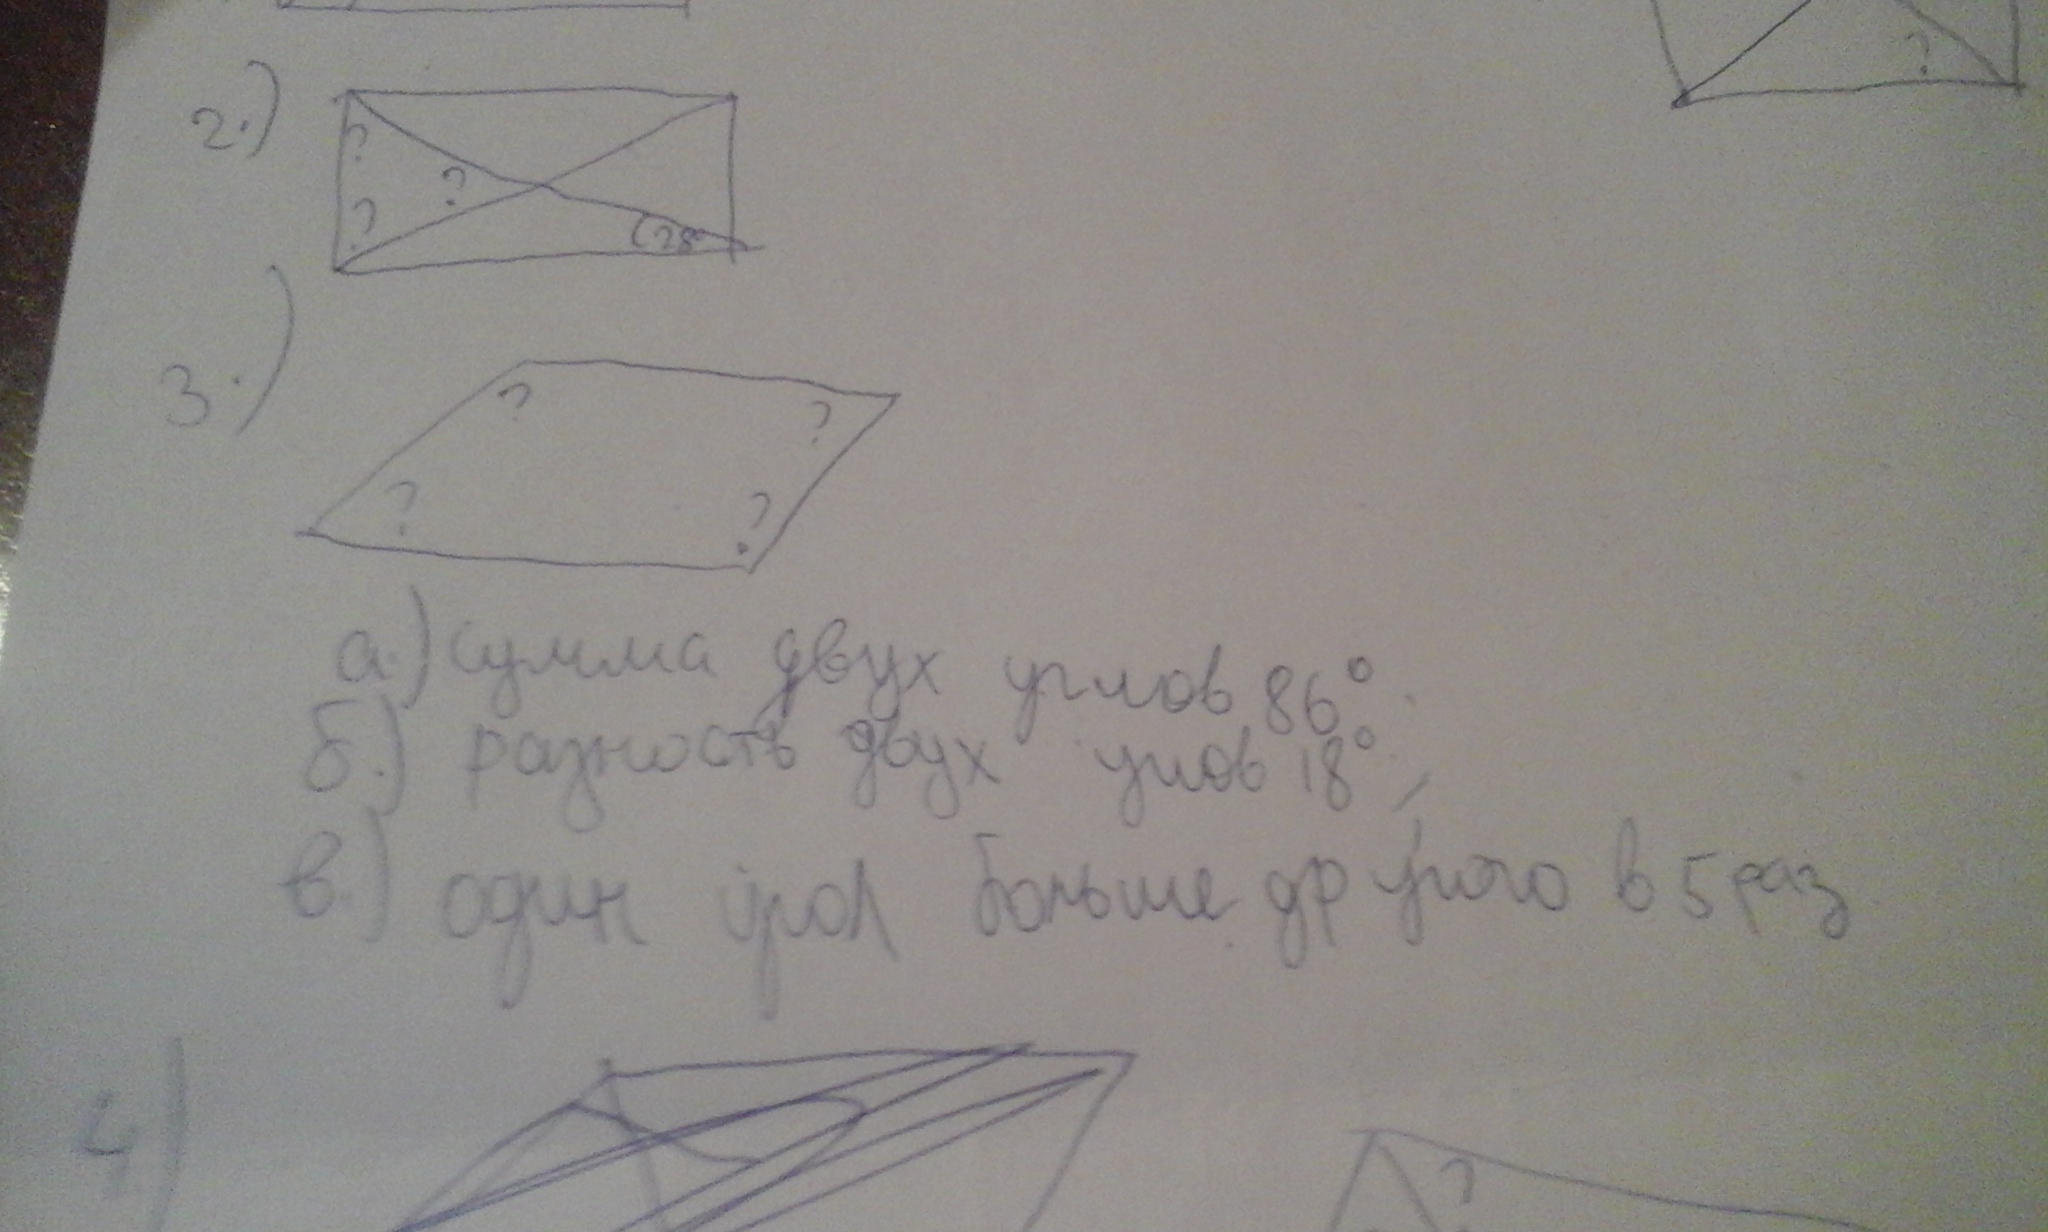 ?
2.)
?
?
?
28°
3.)
?
?
?
?
а.) сумма двух углов 86°.
б.) разность двух углов 18°,
в.) один угол больше другого в 5 раз
4.)
?